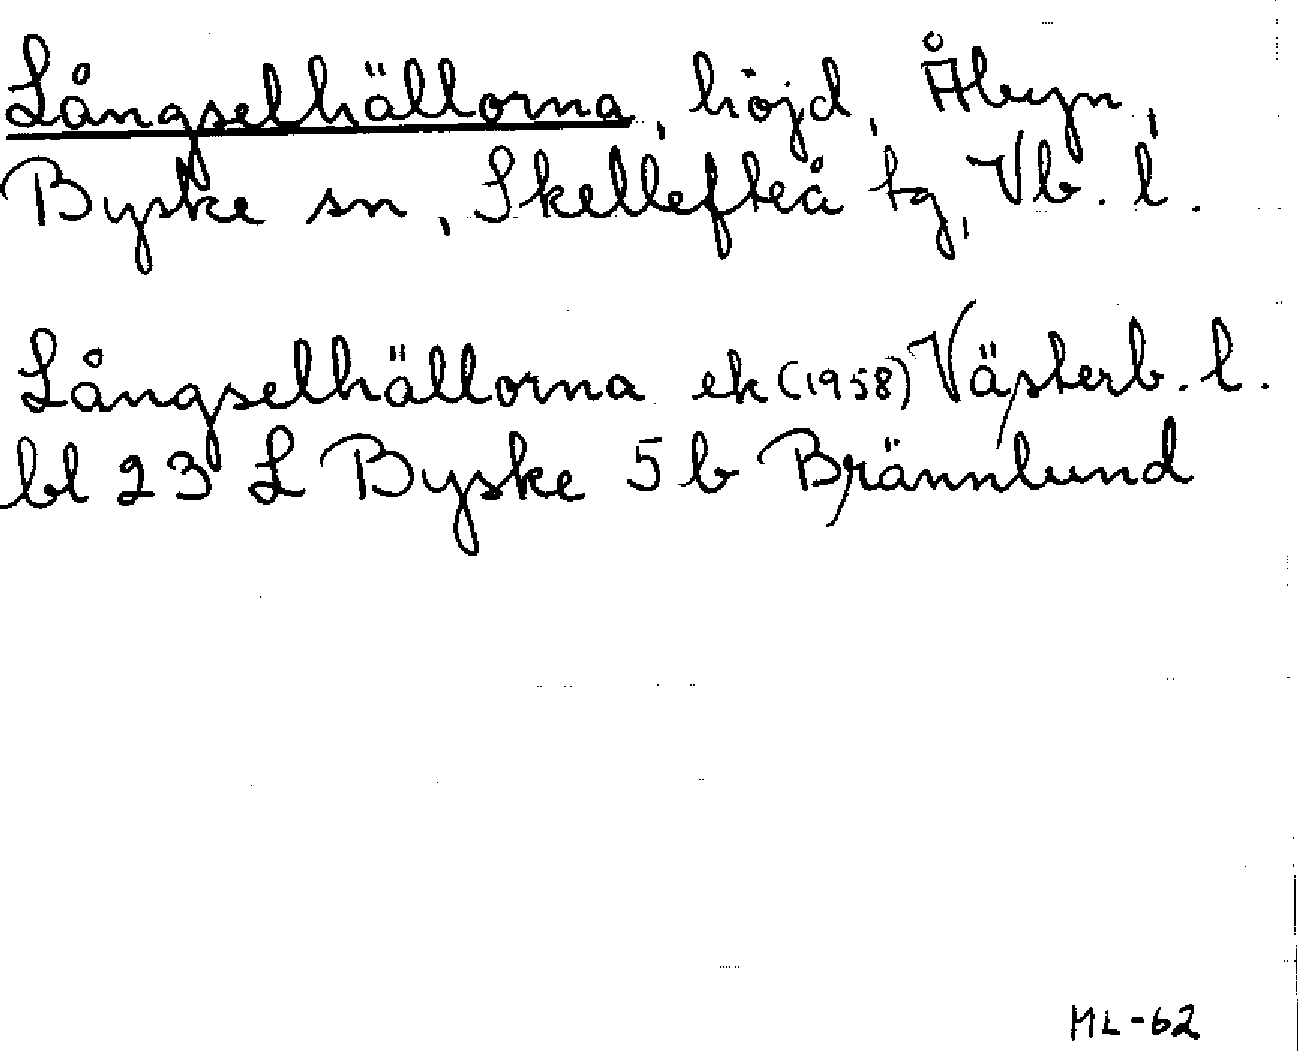 Långselhällorna, höjd, Åbyn,
Byske sn, Skellefteå tg, Vb. l.
Långselhällorna ek (1958) Västerb. l.
bl 23 L Byske 5 b Brännlund
ML-62